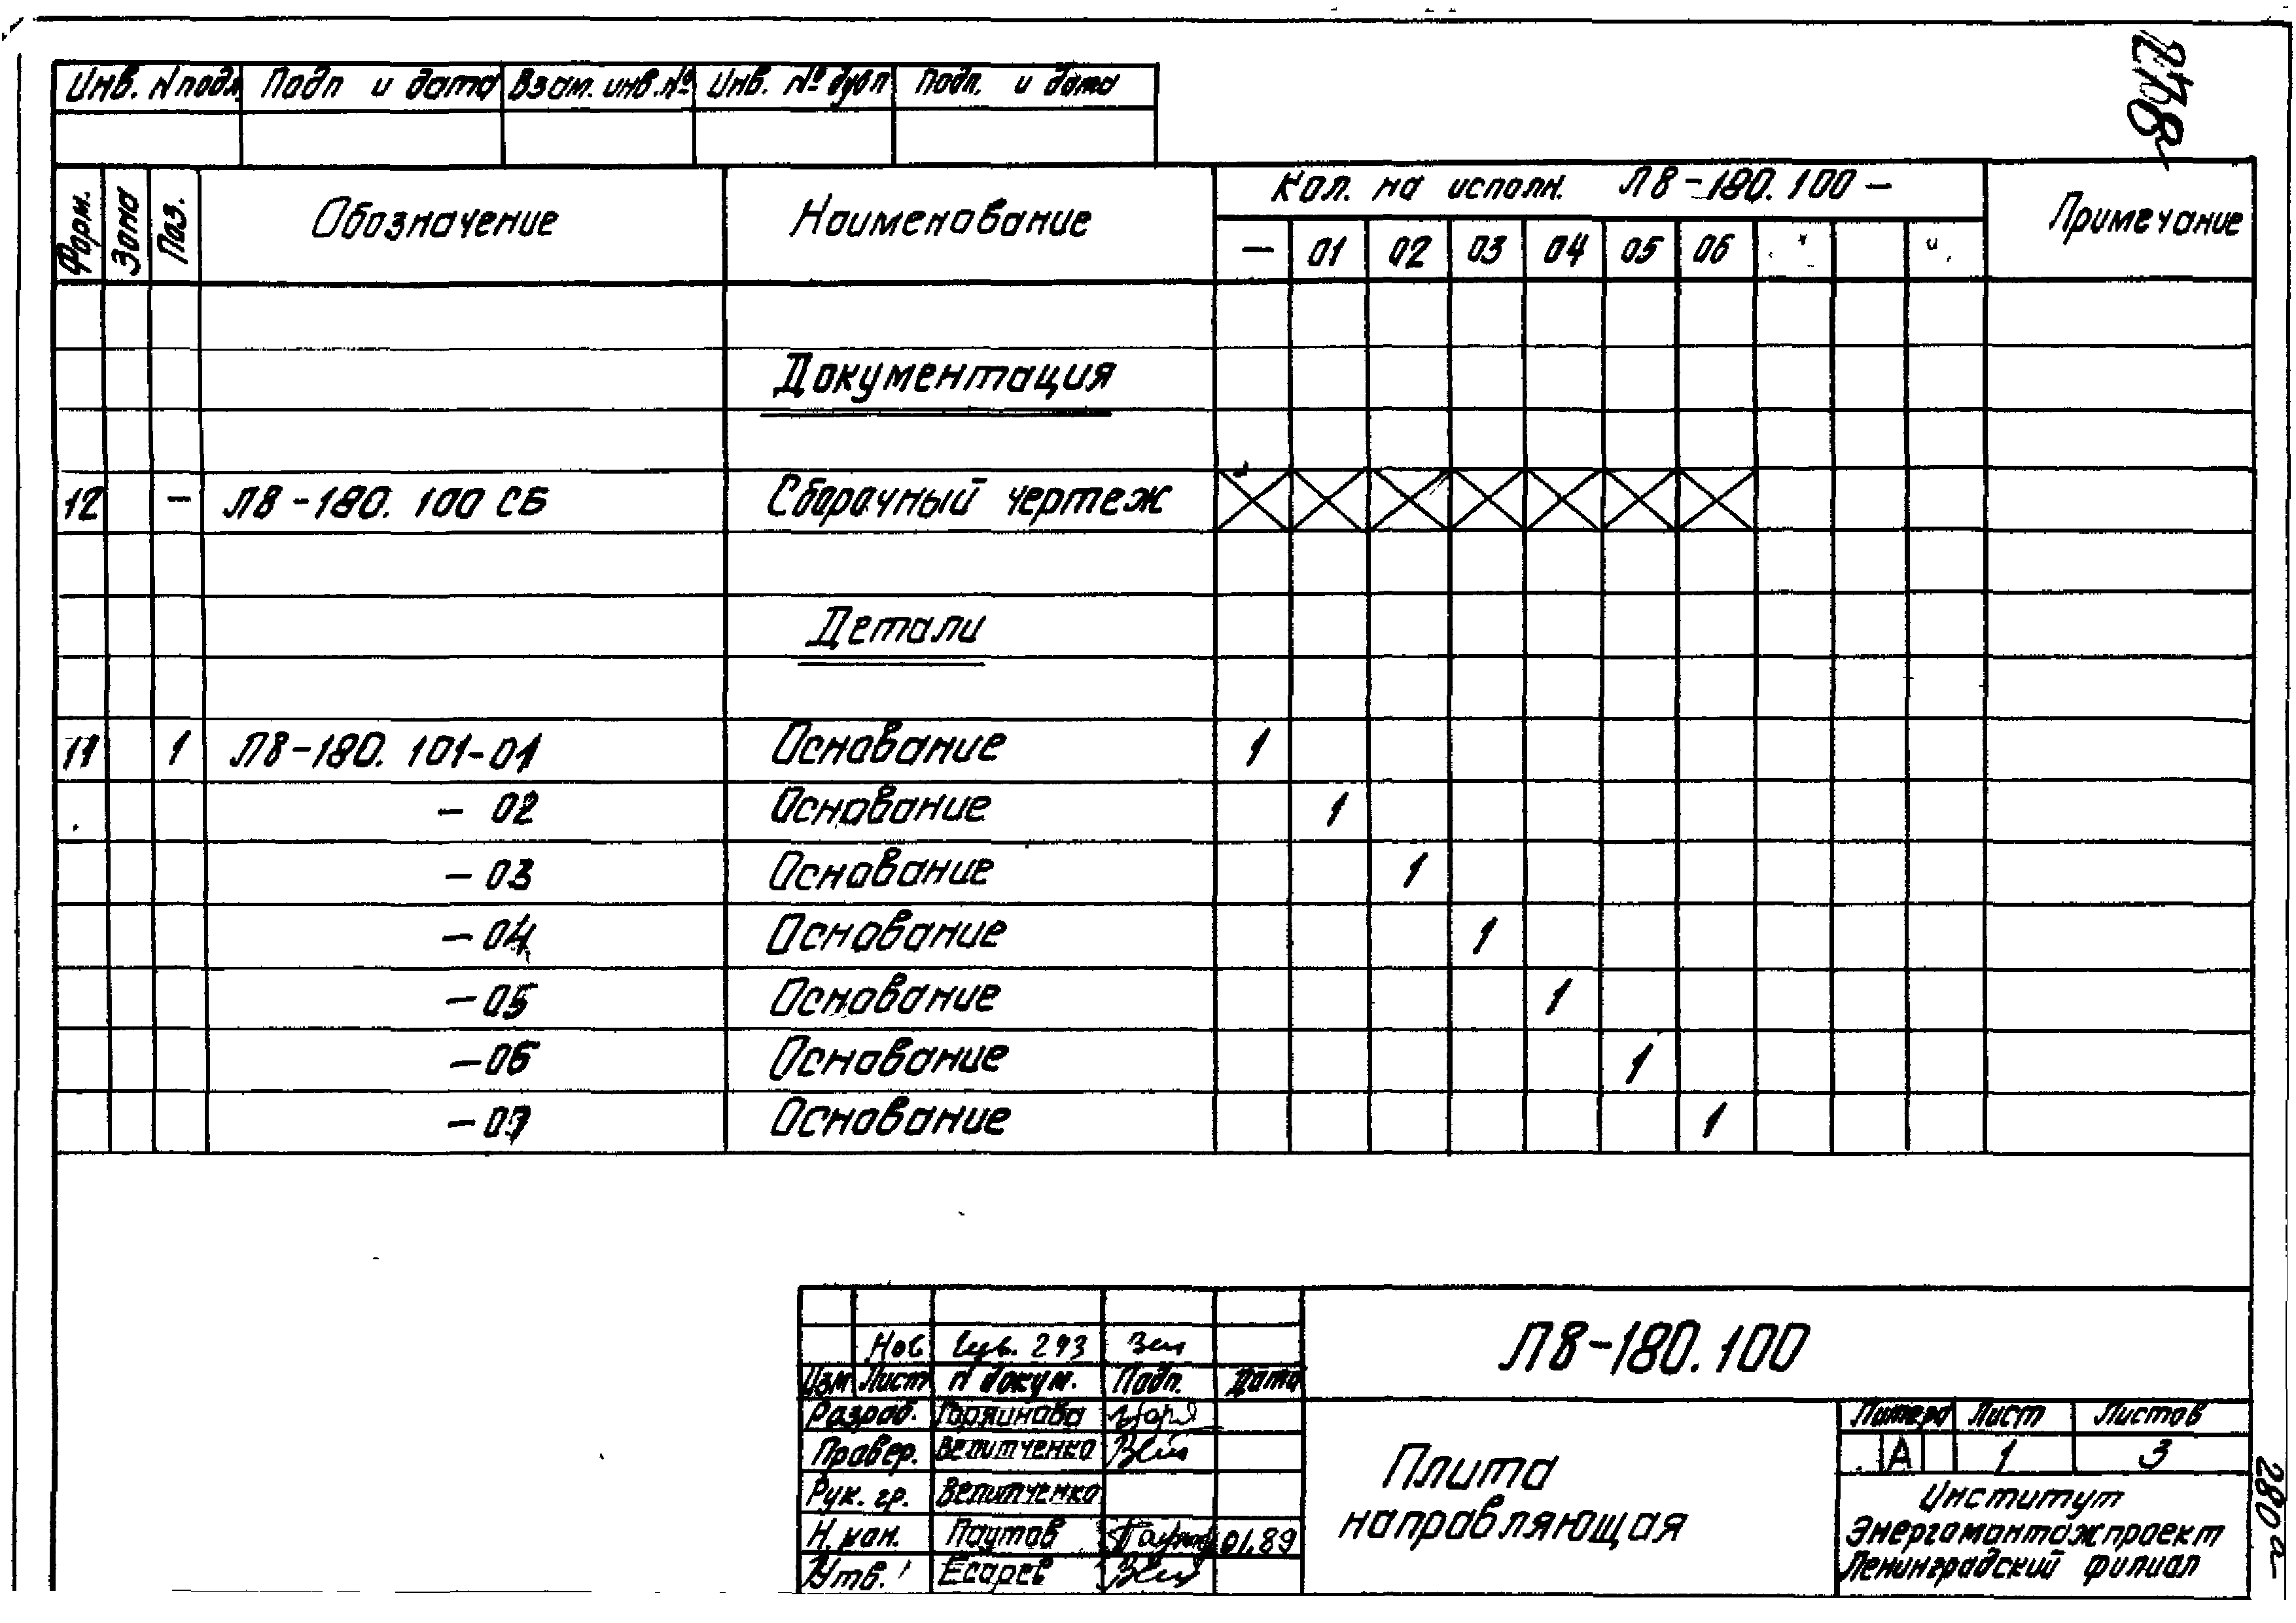 2782
Инв. N подл. Подп и дата Взам. инв. № Инв. № дубл Подп. и дата
Форм. Зона Поз. Обозначение Наименование Кол. на исполн. Л8-180.100- Примечание
- 01 02 03 04 05 06
Документация
12 - Л8-180.100 СБ Сборочный чертеж
Детали
11 1 Л8-180.101-01 Основание 1
- 02 Основание 1
- 03 Основание 1
- 04 Основание 1
- 05 Основание 1
- 06 Основание 1
- 07 Основание 1
Нов 293
Изм Лист N докум. Подп. Дата
Л8-180.100
Разраб. Горяинова
Провер. Велитченко
Рук. гр. Велитченко
Н. кон. Паутов 01.89
Утв. Есарев
Плита
направляющая
Литера Лист Листов
А 1 3
Институт
Энергомонтажпроект
Ленинградский филиал
280а